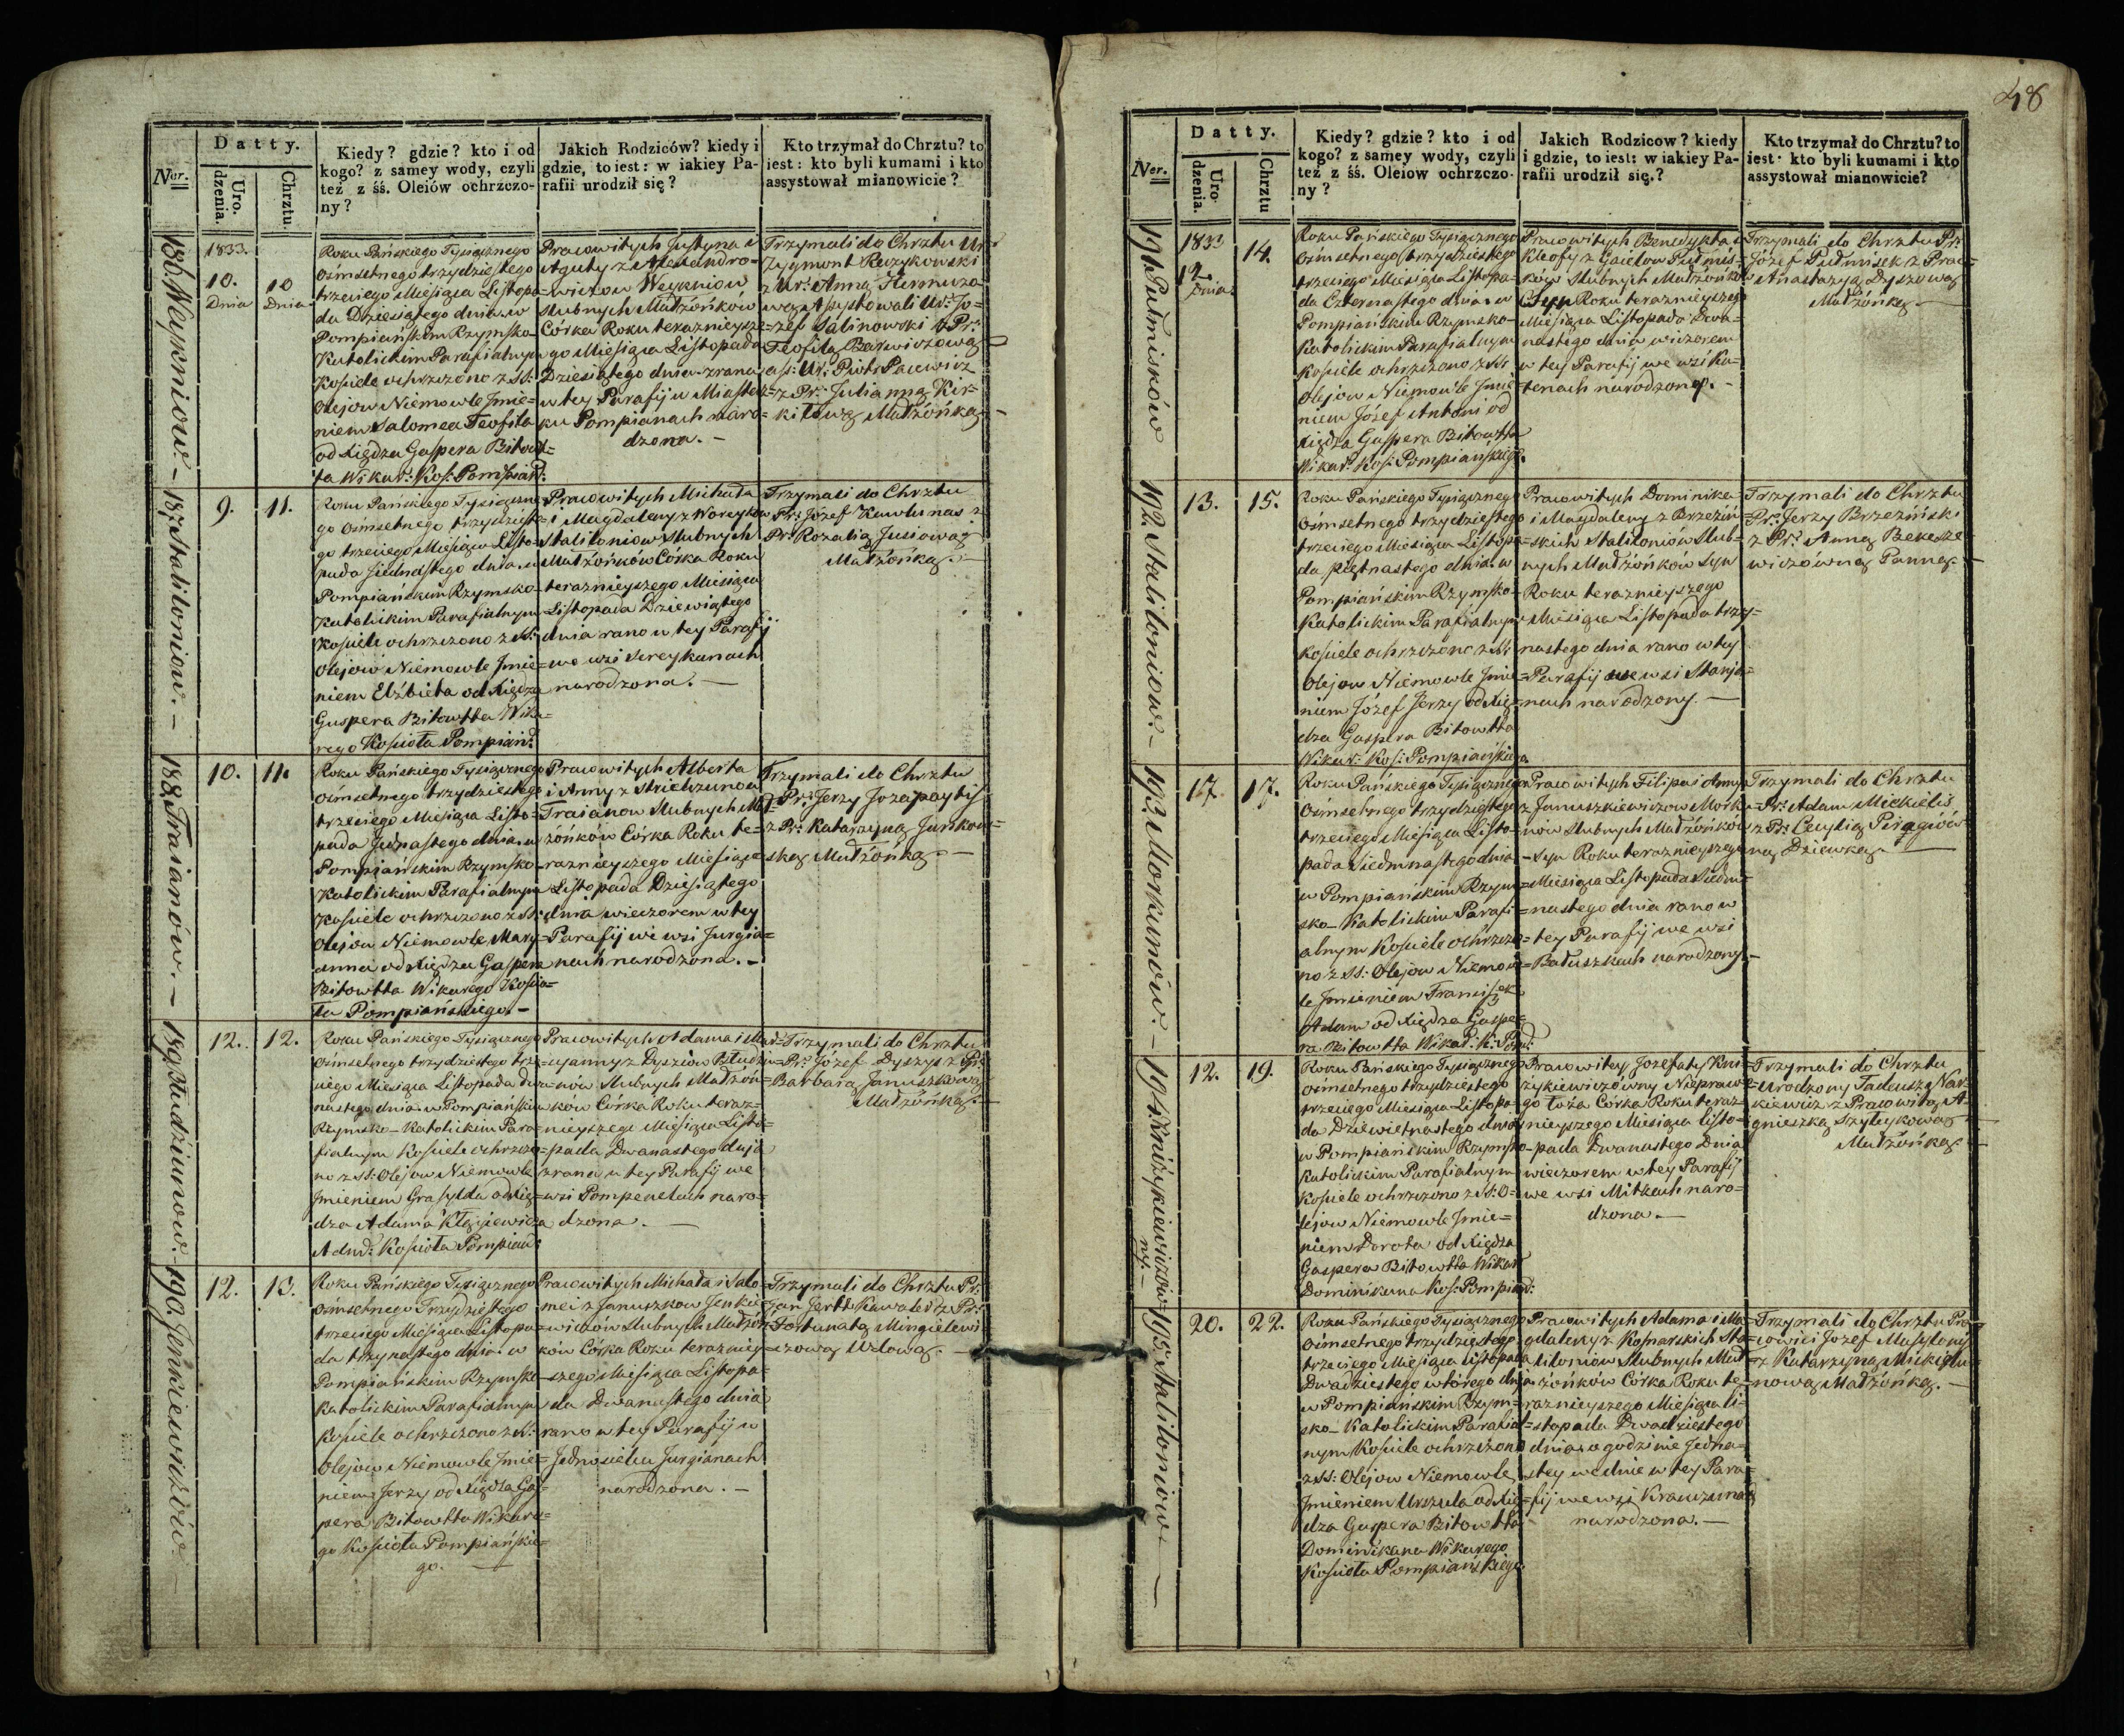 Datty.
Ner.
Uro.
dzenia.
Chrztu.
Kiedy? gdzie? kto i od
kogo? z samey wody, czyli
też z śś. Oleiów ochrzczo-
ny?
Jakich Rodziców? kiedy i
gdzie, to iest: w iakiey Pa-
rafii urodził się?
Kto trzymał do Chrztu? to
iest: kto byli kumami i kto
assystował mianowicie?
186. Weykniow. -
1833.
10.
Dnia
10
Dnia
Roku Pańskiego Tysiącznego
ośmsetnego trzydziestego
trzeciego Miesiąca Listopa=
da Dziesiątego dnia w
Pompiańskim Rzymsko-
Katolickim Parafialnym
Kościele ochrzczono z SS:
Olejow Niemowle Imie=
niem Salomea Teofila
od Xiędza Gaspera Bitowt=
ta Wikar: Koś: Pompiań:
Pracowitych Justyna i
Aguty z Alexandro-
wiczow Weykniow
slubnych Małżonków
Córka Roku teraznieysze=
go Miesiąca Listopada
Dziesiątego dnia zrana
w tey Parafij w Miastecz=
ku Pompianach naro-
dzona. -
Trzymali do Chrztu Ur:
Zygmont Reczykowski
z Ur: Anną
Assystowali Ur: Jo=
zef Salinowski z Pr:
Teofilą
as: Ur: Piotr Pacewicz
z Pr: Julianną Kir-
kiłową Małżonką -
187. Staliloniow. -
9.
11.
Roku Pańskiego Tysiączne
go ośmsetnego trzydzieste=
go trzeciego Miesiąca Listo-
pada Jednastego dnia w
Pompiańskim Rzymsko-
Katolickim Parafialnym
Kościele ochrzczono z SS:
Olejow Niemowle Imie=
niem Elżbieta od Xiędza
Gaspera Bitowtta Wika=
rego Kościoła Pompiań:
Pracowitych Michała
i Magdaleny z
Staliloniow slubnych
Małżonków Córka Roku
teraznieyszego Miesiąca
Listopada Dziewiątego
dnia rano w tey Parafij
we wsi Sereykunach
narodzona. -
Trzymali do Chrztu
Pr: Józef Kawlunas z
Pr: Rozalią Jusiową
Małżonką. -
188. Traianów. -
10.
11.
Roku Pańskiego Tysiącznego
ośmsetnego trzydziestego
trzeciego Miesiąca Listo-
pada Jednastego dnia w
Pompiańskim Rzymsko-
Katolickim Parafialnym
Kościele ochrzczono z SS:
Olejow Niemowle Mary=
anna od Xiędza Gaspera
Bitowtta Wikarego Kościo=
ła Pompiańskiego. -
Pracowitych Alberta
i Anny z Strielczunow
Traianow slubnych Mał=
żonków Córka Roku te=
raznieyszego Miesiąca
Listopada Dziesiątego
dnia wieczorem w tey
Parafij we wsi Jurgia=
nach narodzona. -
Trzymali do Chrztu
Pr: Jerzy Jozapaytis
z Pr: Katarzyną Jankow=
ską Małżonką. -
189. Studziunow.
12.
12.
Roku Pańskiego Tysiącznego
ośmsetnego trzydziestego trze=
ciego Miesiąca Listopada dwu=
nastego dnia w Pompiańskim
Rzymsko-Katolickim Para=
fialnym Kościele ochrzczo=
no z SS: Olejow Niemowle
Imieniem Grasylda od Xię=
dza Adama
Admi: Kościoła Pompiań:
Pracowitych Adama i Ma=
ryanny z Dyszów Studziu=
nów slubnych Małżon=
ków Córka Roku teraz-
nieyszego Miesiąca Listo=
pada Dwanastego dnia
zrana w tey Parafij we
wsi Pompenelach naro=
dzona. -
Trzymali do Chrztu
Pr: Józef Dyszys z Pr:
Barbarą Januszkową
Małżonką. -
190. Jenkiewiczów -
12.
13.
Roku Pańskiego Tysiącznego
ośmsetnego Trzydziestego
trzeciego Miesiąca Listopa=
da trzynastego dnia w
Pompiańskim Rzymsko
Katolickim Parafialnym
Kościele ochrzczono z SS:
Olejow Niemowle Imie=
niem Jerzy od Xiędza Gas=
pera Bitowtta Wikare=
go Kościoła Pompiańskie=
go. -
Pracowitych Michała i Salo=
mei z Januszkow Jenkie=
wiczów slubnych Małżon=
kow Córka Roku terazniey=
szego Miesiąca Listopa=
da Dwanastego dnia
rano w tey Parafij w
Jednosielu Jurgianach
narodzona. -
Trzymali do Chrztu Pr:
Jan Jertt Kawaler z Pr:
Fortunatą Mingielewi=
czową Wdową. -
48
Datty.
Ner.
Uro
dzenia.
Chrztu
Kiedy? gdzie? kto i od
kogo? z samey wody, czyli
też z śś. Oleiow ochrzczo-
ny?
Jakich Rodzicow? kiedy
i gdzie, to iest: w iakiey Pa-
rafii urodził się.?
Kto trzymał do Chrztu? to
iest· kto byli kumami i kto
assystował mianowicie?
191. Putmisków
1833
12.
Dnia
14.
Roku Pańskiego Tysiącznego
ośmsetnego trzydziestego
trzeciego Miesiąca Listopa-
da Czternastego dnia w
Pompiańskim Rzymsko-
Katolickim Parafialnym
Kościele ochrzczono z SS
Olejow Niemowle Imie
niem Józef Antoni od
Xiędza Gaspera Bitowtta
Wikar: Koś: Pompiańskiego.
Pracowitych Benedykta i
Kleofy z Gaielow Putmis-
ków slubnych Małżonków
Syn Roku teraznieyszego
Miesiąca Listopada Dwa=
nastego dnia wieczorem
w tey Parafij we wsi Ka=
tenach narodzony. -
Trzymali do Chrztu Pr:
Józef Putmisek z Prac:
Anastazyą Dyszową
Małżonką. -
192. Staliloniow. -
13.
15.
Roku Pańskiego Tysiącznego
ośmsetnego trzydziestego
trzeciego Miesiąca Listopa=
da piętnastego dnia w
Pompiańskim Rzymsko-
Katolickim Parafialnym
Kościele ochrzczono z SS
Olejow Niemowle Imie=
niem Józef Jerzy od Xię=
dza Gaspera Bitowtta
Wikar: Koś: Pompiańskiego
Pracowitych Dominika
i Magdaleny z Brzeziń=
skich Staliloniów slub=
nych Małżonków Syn
Roku teraznieyszego
Miesiąca Listopada trzy=
nastego dnia rano w tey
Parafij we wsi Stanja=
nach narodzony. -
Trzymali do Chrztu
Pr: Jerzy Brzeziński
z Pr: Anną Bekesze
wiczówną Panną. -
193. Morkunów. -
17.
17.
Roku Pańskiego Tysiącznego
ośmsetnego trzydziestego
trzeciego Miesiąca Listo-
pada siedmnastego dnia
w Pompiańskim Rzym=
sko-Katolickim Parafi=
alnym Kościele ochrzczo=
no z SS: Olejow Niemow=
le Imieniem Franciszek
Adam od Xiędza Gaspe=
ra Bitowtta Wikar: K: Pom:
Pracowitych Filipa i Anny
z Januszkiewiczow Morku=
nów slubnych Małżonków
Syn Roku teraznieyszego
Miesiąca Listopada siedm=
nastego dnia rano w
tey Parafij we wsi
Bałuszkach narodzony. -
Trzymali do Chrztu
Pr: Adam Mickielis
z Pr: Cecylią Piragiów
ną Dziewką. -
194. Knizykiewiczów=
ny. -
12.
19.
Roku Pańskiego Tysiącznego
ośmsetnego trzydziestego
trzeciego Miesiąca Listopa-
da Dziewiętnastego dnia
w Pompiańskim Rzymsko-
Katolickim Parafialnym
Kościele ochrzczono z SS: O=
lejow Niemowle Imie=
niem Dorota od Xiędza
Gaspera Bitowtta Wikar
Dominikana Koś: Pompiań:
Pracowitey Jozefaty Kni=
zykiewiczówny Niepraw=
go łoża Córka Roku teraz=
nieyszego Miesiąca Listo=
pada Dwanastego Dnia
wieczorem w tey Parafij
we wsi Mitkach naro=
dzona. -
Trzymali do Chrztu
Urodzony Tadeusz Nar=
kiewicz z Pracowitą A=
gnieszką
Małżonką. -
195. Staliloniow -
20.
22.
Roku Pańskiego Tysiącznego
ośmsetnego trzydziestego
trzeciego Miesiąca Listopada
Dwadziestego wtórego dnia
w Pompiańskim Rzym=
sko-Katolickim Parafial=
nym Kościele ochrzczono
z SS: Olejow Niemowle
Imieniem Urszula od Xię=
dza Gaspera Bitowtta
Dominikana Wikarego
Kościoła Pompiańskiego.
Pracowitych Adama i Ma=
gdaleny z Kosnarskich Sta=
liloniow slubnych Mał=
żonków Córka Roku te=
raznieyszego Miesiąca Li=
stopada Dwadziestego
dnia o godzinie Jedna=
stey we dnie w tey Para=
fij we wsi Krawczunach
narodzona. -
Trzymali do Chrztu Pra=
cowici Jozef Musylonis
z Katarzyną Mickielu=
nową Małżonką. -